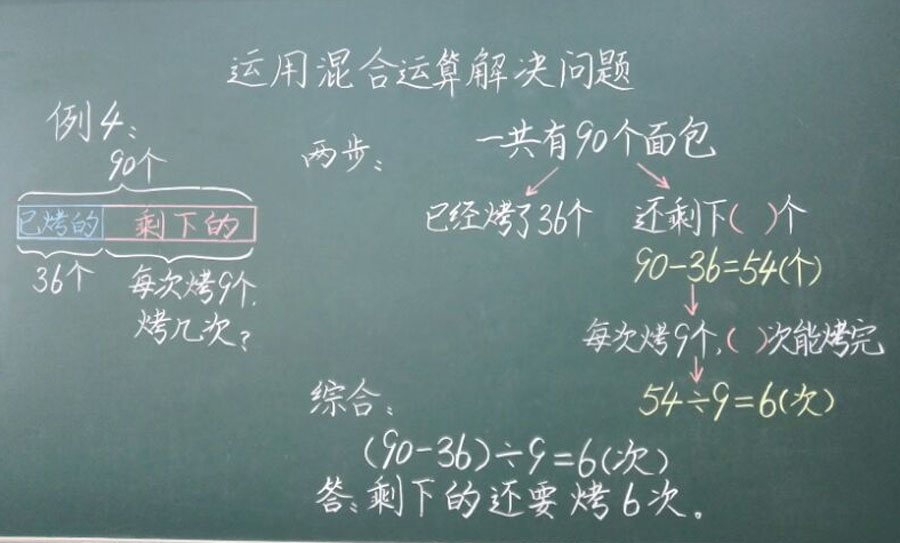 运用混合运算解决问题
例4:
90个
已烤的 剩下的
36个 每次烤9个,
烤几次?
两步:
一共有90个面包
已经烤了36个 还剩下( )个
90-36=54(个)
每次烤9个,( )次能烤完
54÷9=6(次)
综合:
(90-36)÷9=6(次)
答:剩下的还要烤6次。